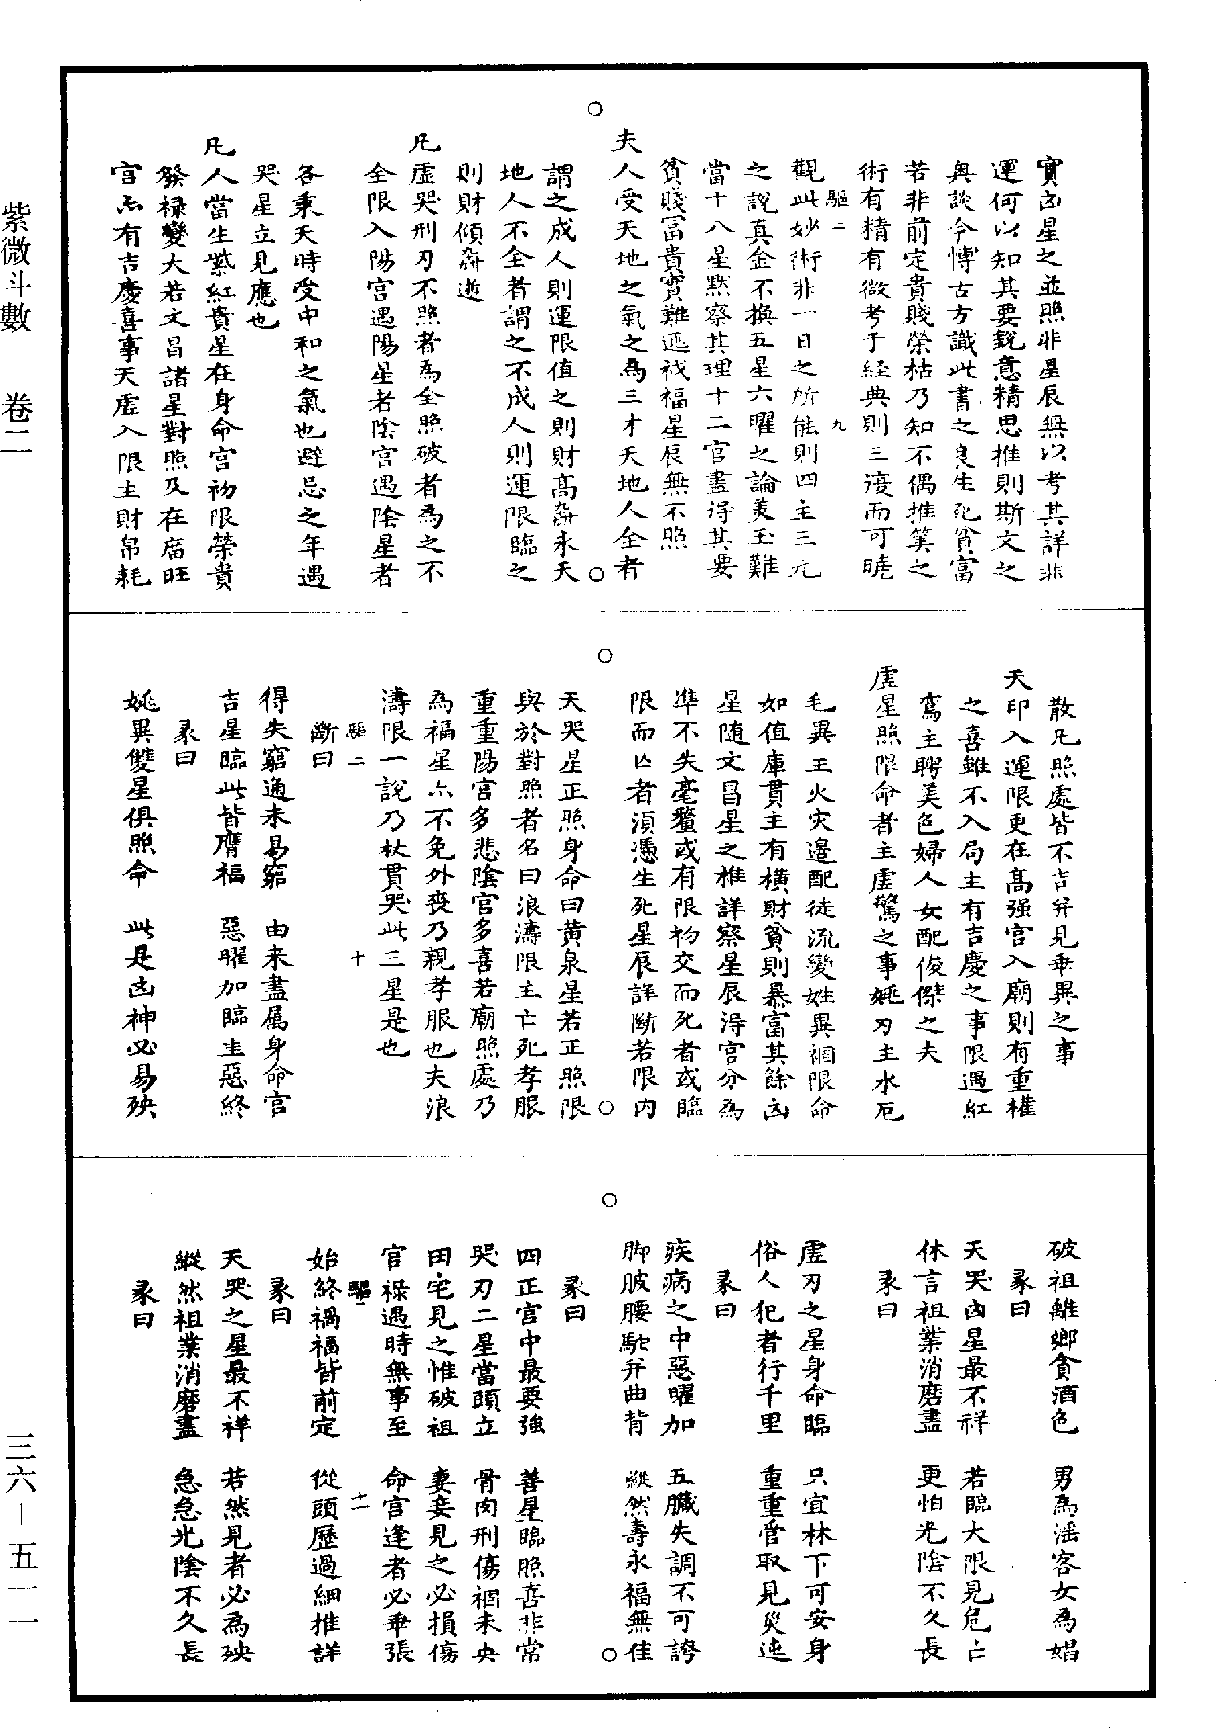 實凶星之並照非星辰無以考其詳非
運何以知其要銳意精思推則斯文之
與談今博古方識此書之良生死貧富
若非前定貴賤榮枯乃知不偶推筭之
術有精有微考于經典則三復而可曉
驅二 九
觀此妙術非一日之所能則四主三元
之說真金不換五星六曜之論美玉難
當十八星默察其理十二宮盡得其要
貧賤富貴實難逃禍福星辰無不照
夫人受天地之氣之為三才天地人全者
謂之成人則運限值之則財高齡永天
地人不全者謂之不成人則運限臨之
則財傾齡逝
凡虛哭刑刃不照者為全照破者為之不
全限入陽宮遇陽星者陰宮遇陰星者
各秉天時受中和之氣也避忌之年遇
哭星立見應也
凡人當生紫紅貴星在身命宮初限榮貴
發祿變大若文昌諸星對照及在廟旺
宮亦有吉慶喜事天虛入限主財帛耗
散凡照處皆不吉并見乖異之事
天印入運限更在高強宮入廟則有重權
之喜雖不入局主有吉慶之事限遇紅
鸞主聘美色婦人女配俊傑之夫
虛星照限命者主虛驚之事姚刃主水厄
毛異主火災邊配徒流變姓異禍限命
如值庫貫主有橫財貧則暴富其餘凶
星隨文昌星之推詳察星辰淂宮分為
準不失毫釐或有限初交而死者或臨
限而亡者須憑生死星辰詳斷若限內
天哭星正照身命曰黄泉星若正照限
與於對照者名曰浪濤限主亡死孝服
重重陽宮多悲陰宮多喜若廟照處乃
為福星亦不免外喪乃親孝服也夫浪
濤限一說乃杖貫哭此三星是也
驅二 十
斷曰
得失窮通未易窮 由来盡属身命宮
吉星臨此皆膺福 惡曜加臨生惡終
彖曰
姚異雙星俱照命 此是凶神必易殃
破祖離鄉貪酒色 男為滛客女為娼
彖曰
天哭凶星最不祥 若臨大限見危亡
休言祖業消磨盡 更怕光陰不久長
彖曰
虛刃之星身命臨 只宜林下可安身
俗人犯者行千里 重重管取見災迍
彖曰
疾病之中惡曜加 五臟失調不可誇
脚跛腰駝并曲背 縱然壽永福無佳
彖曰
四正宮中最要強 善星臨照喜非常
哭刃二星當頭立 骨肉刑傷禍未央
田宅見之惟破祖 妻妾見之必損傷
官祿遇時無事至 命宮逢者必乖張
驅二 十一
始終禍福皆前定 從頭歷過細推詳
彖曰
天哭之星最不祥 若然見者必為殃
縱然祖業消磨盡 急急光陰不久長
彖曰
紫微斗數 卷二
三六—五一一